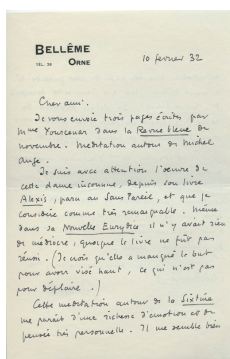 BELLÊME
TÉL. 28 ORNE
10 fevrier 32
Cher ami.
Je vous envoie trois pages écrites par
Mme Yourcenar dans la Revue bleue de
novembre. Meditation autour de Michel
Ange.
Je suis avec attention l'œuvre de
cette dame inconnue, depuis son livre
Alexis, paru au Sans Pareil, et que je
considère comme très remarquable. Même
dans sa Nouvelle Eurydice il n'y avait rien
de médiocre, quoique le livre ne fût pas
réussi. (Je crois qu'elle a manqué le but
pour avoir visé haut, ce qui n'est pas
pour déplaire.)
Cette meditation autour de la Sixtine
me paraît d'une richesse d'émotion et de
pensée très personnelle. Il me semble bien